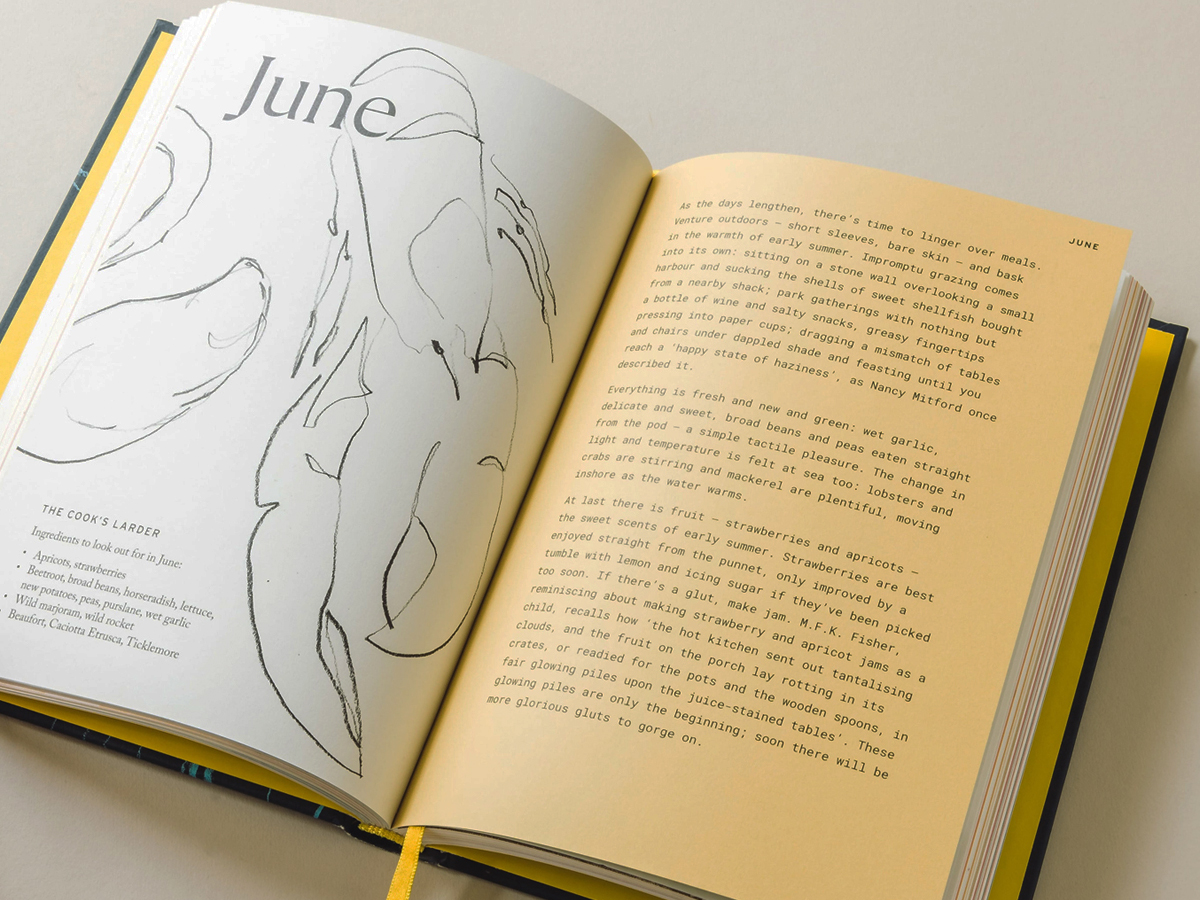 June
THE COOK'S LARDER
Ingredients to look out for in June:
• Apricots, strawberries
• Beetroot, broad beans, horseradish, lettuce,
new potatoes, peas, purslane, wet garlic
• Wild marjoram, wild rocket
• Beaufort, Caciotta Etrusca, Ticklemore
JUNE
As the days lengthen, there's time to linger over meals.
Venture outdoors – short sleeves, bare skin – and bask
in the warmth of early summer. Impromptu grazing comes
into its own: sitting on a stone wall overlooking a small
harbour and sucking the shells of sweet shellfish bought
from a nearby shack; park gatherings with nothing but
a bottle of wine and salty snacks, greasy fingertips
pressing into paper cups; dragging a mismatch of tables
and chairs under dappled shade and feasting until you
reach a 'happy state of haziness', as Nancy Mitford once
described it.
Everything is fresh and new and green: wet garlic,
delicate and sweet, broad beans and peas eaten straight
from the pod – a simple tactile pleasure. The change in
light and temperature is felt at sea too: lobsters and
crabs are stirring and mackerel are plentiful, moving
inshore as the water warms.
At last there is fruit – strawberries and apricots –
the sweet scents of early summer. Strawberries are best
enjoyed straight from the punnet, only improved by a
tumble with lemon and icing sugar if they've been picked
too soon. If there's a glut, make jam. M.F.K. Fisher,
reminiscing about making strawberry and apricot jams as a
child, recalls how 'the hot kitchen sent out tantalising
clouds, and the fruit on the porch lay rotting in its
crates, or readied for the pots and the wooden spoons, in
fair glowing piles upon the juice-stained tables'. These
glowing piles are only the beginning; soon there will be
more glorious gluts to gorge on.